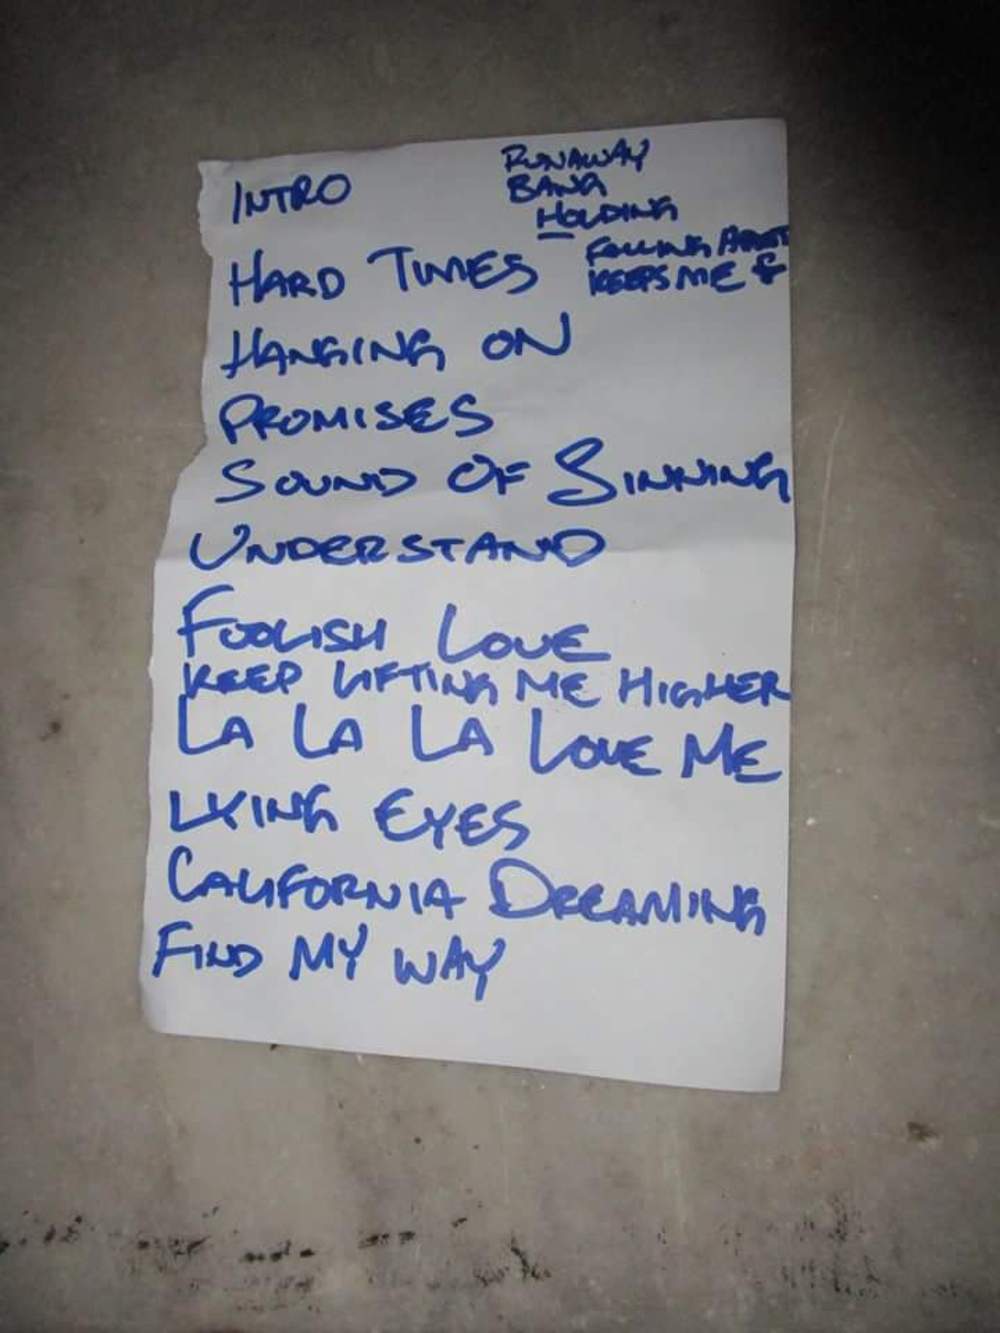 INTRO
RUNAWAY
BANG
HOLDING
FALLING APART
KEEPS ME &
HARD TIMES
HANGING ON
PROMISES
SOUND OF SINNING
UNDERSTAND
FOOLISH LOVE
KEEP LIFTING ME HIGHER
LA LA LA LOVE ME
LYING EYES
CALIFORNIA DREAMING
FIND MY WAY